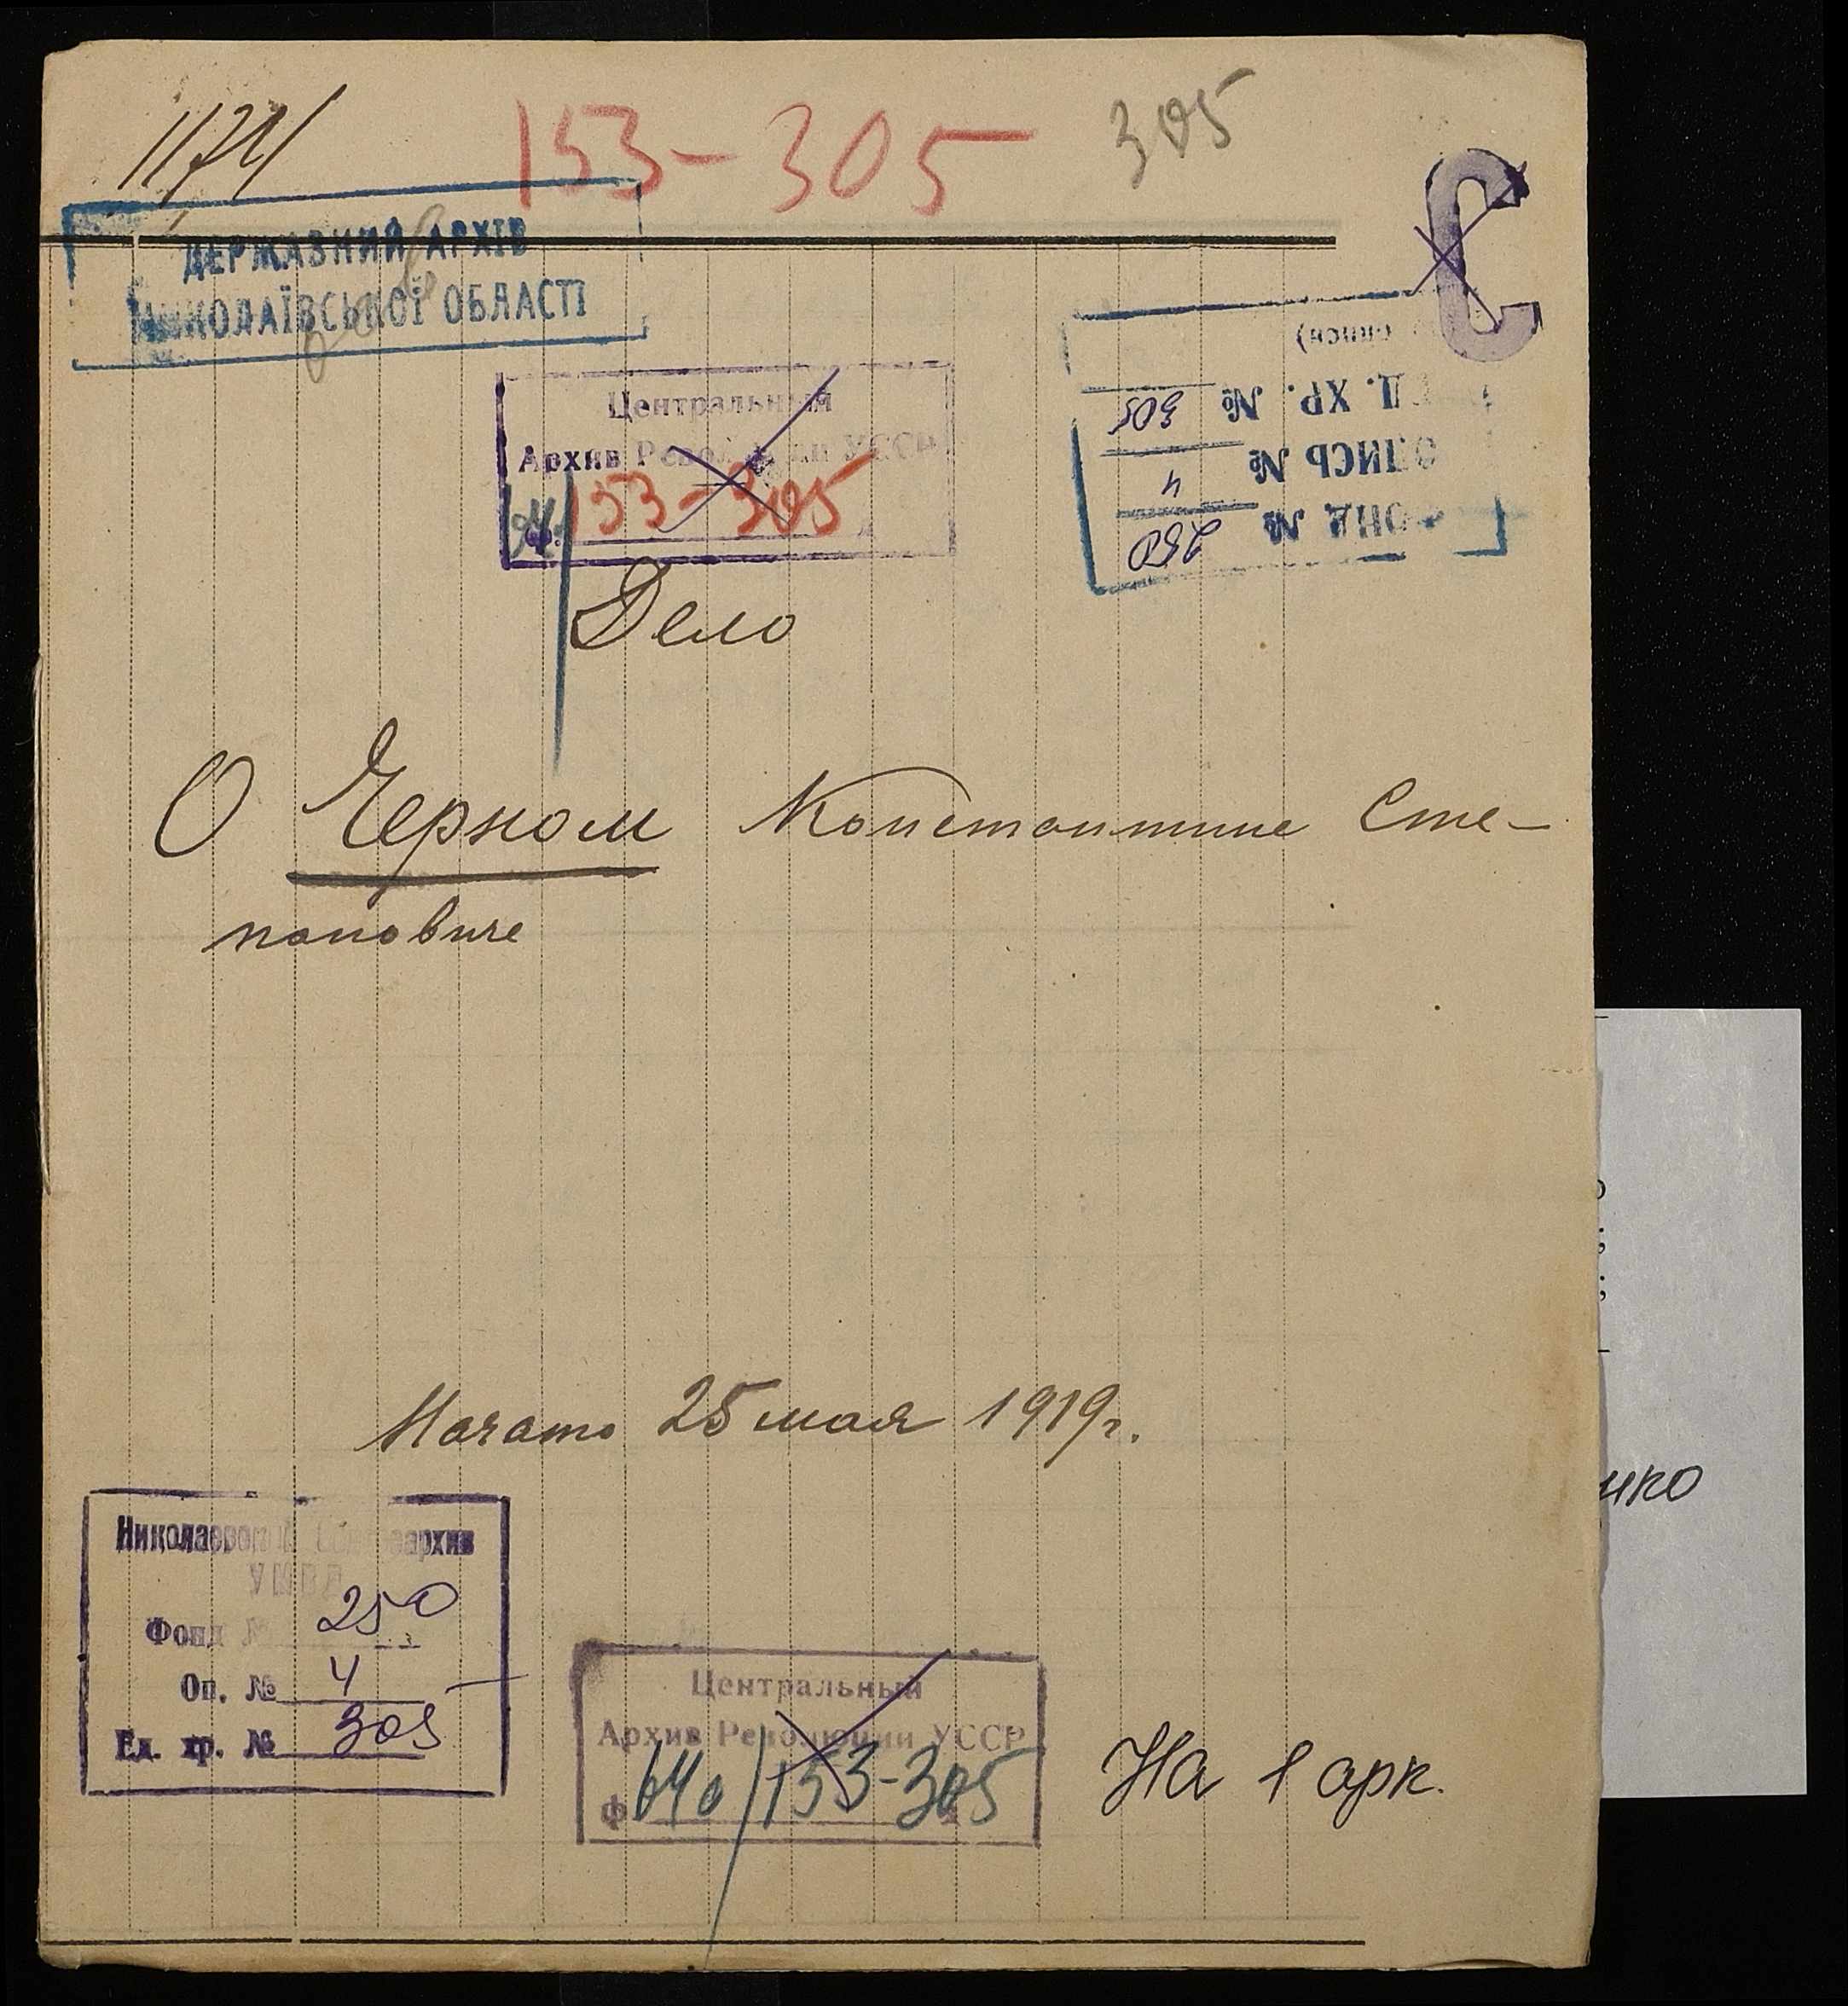 153-305
305
ДЕРЖАВНИЙ АРХІВ
МИКОЛАЇВСЬКОЇ ОБЛАСТІ
С
Центральный
Архив Революции УССР
153-305
ФОНД № 250
ОПИСЬ № 4
ЕД. ХР. № 305
описи)
Дело
О Черном Константине Сте-
пановиче
Начато 25 мая 1919 г.
Николаевский Облгосархив
УМВД
Фонд № 250
Оп. № 4
Ед. хр. № 305
Центральный
Архив Революции УССР
ф 640/153-305
На 1 арк.